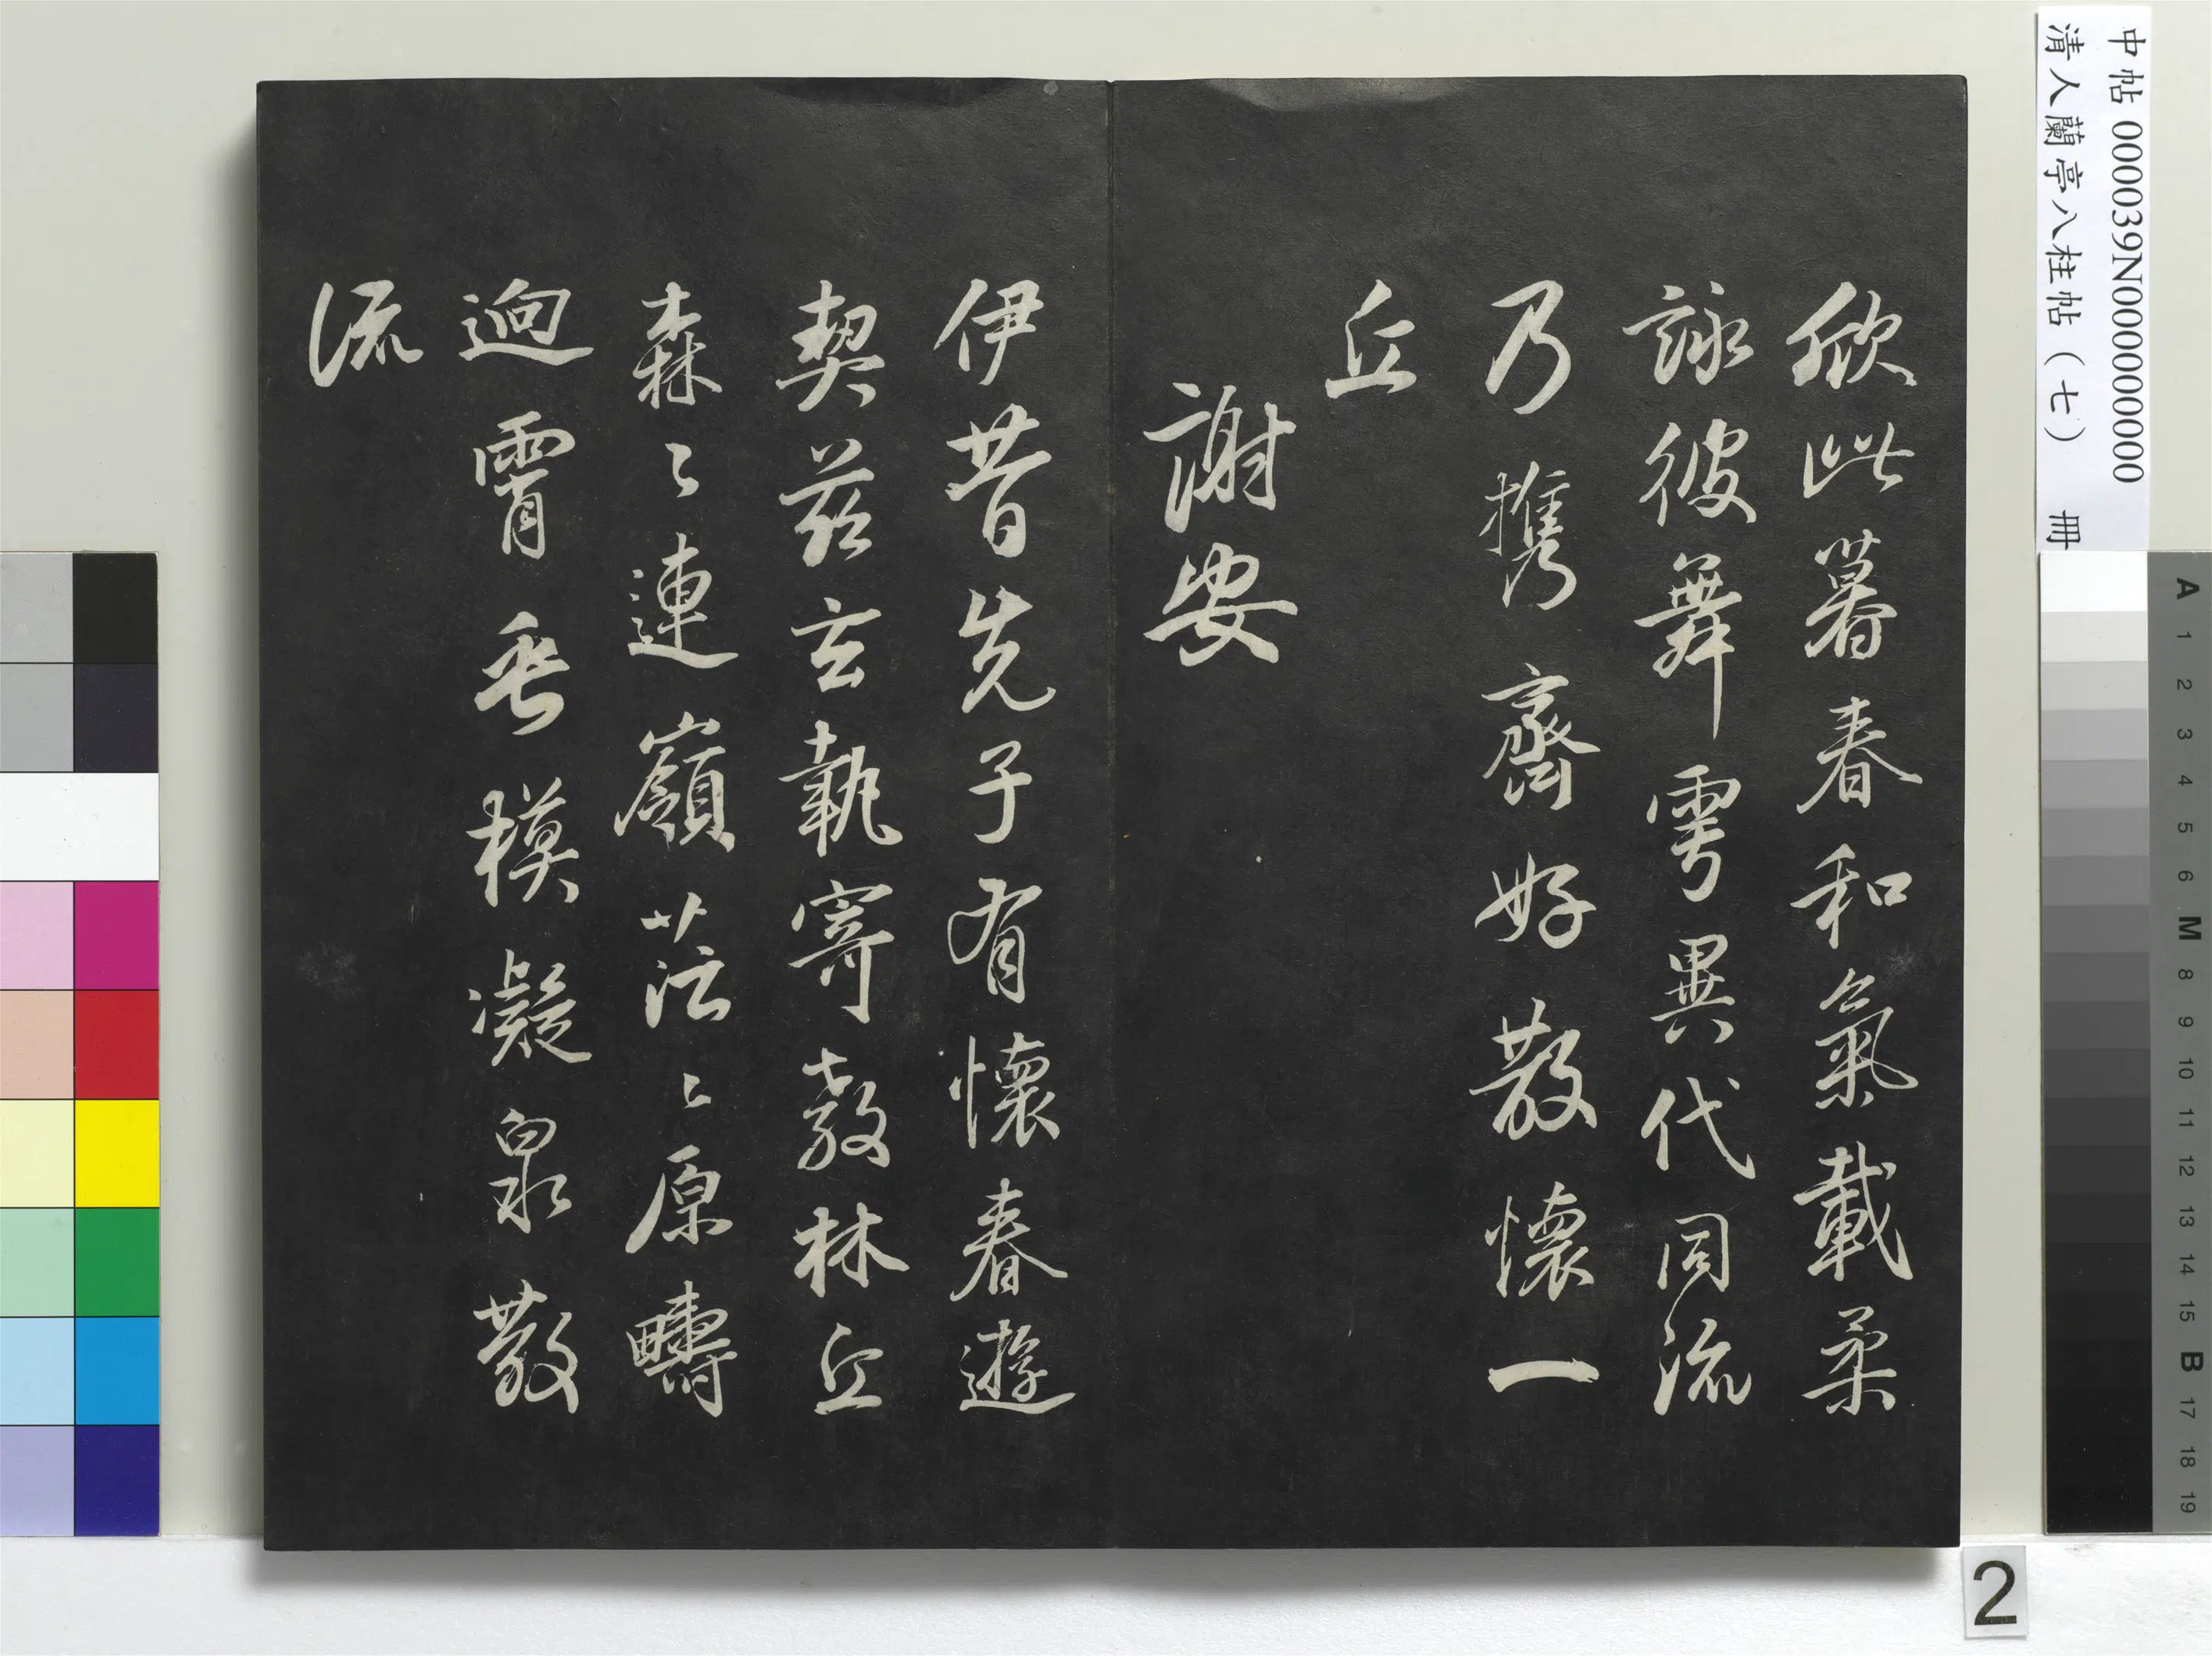 欣此暮春和氣載柔
詠彼舞雩異代同流
乃携齊好散懷一
丘
謝安
伊昔先子有懷春遊
契茲玄執寄敖林丘
森〻連嶺茫〻原疇
逈霄垂模凝泉散
流
中帖 000039N000000000
清人蘭亭八柱帖(七) 冊
A
1
2
3
4
5
6
M
8
9
10
11
12
13
14
15
B
17
18
19
2